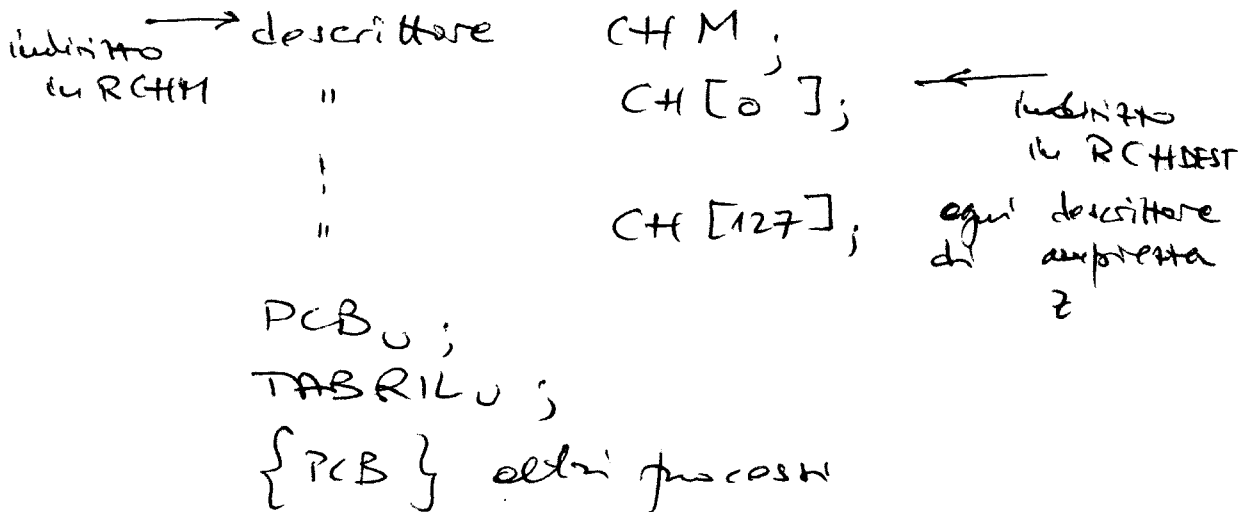 indirizzo in RCHM → descrittore CHM;
" CH[0]; ← indirizzo in RCHDEST
⋮
" CH[127]; ogni descrittore di ampiezza z
PCBU;
TABRILU;
{PCB} altri processi